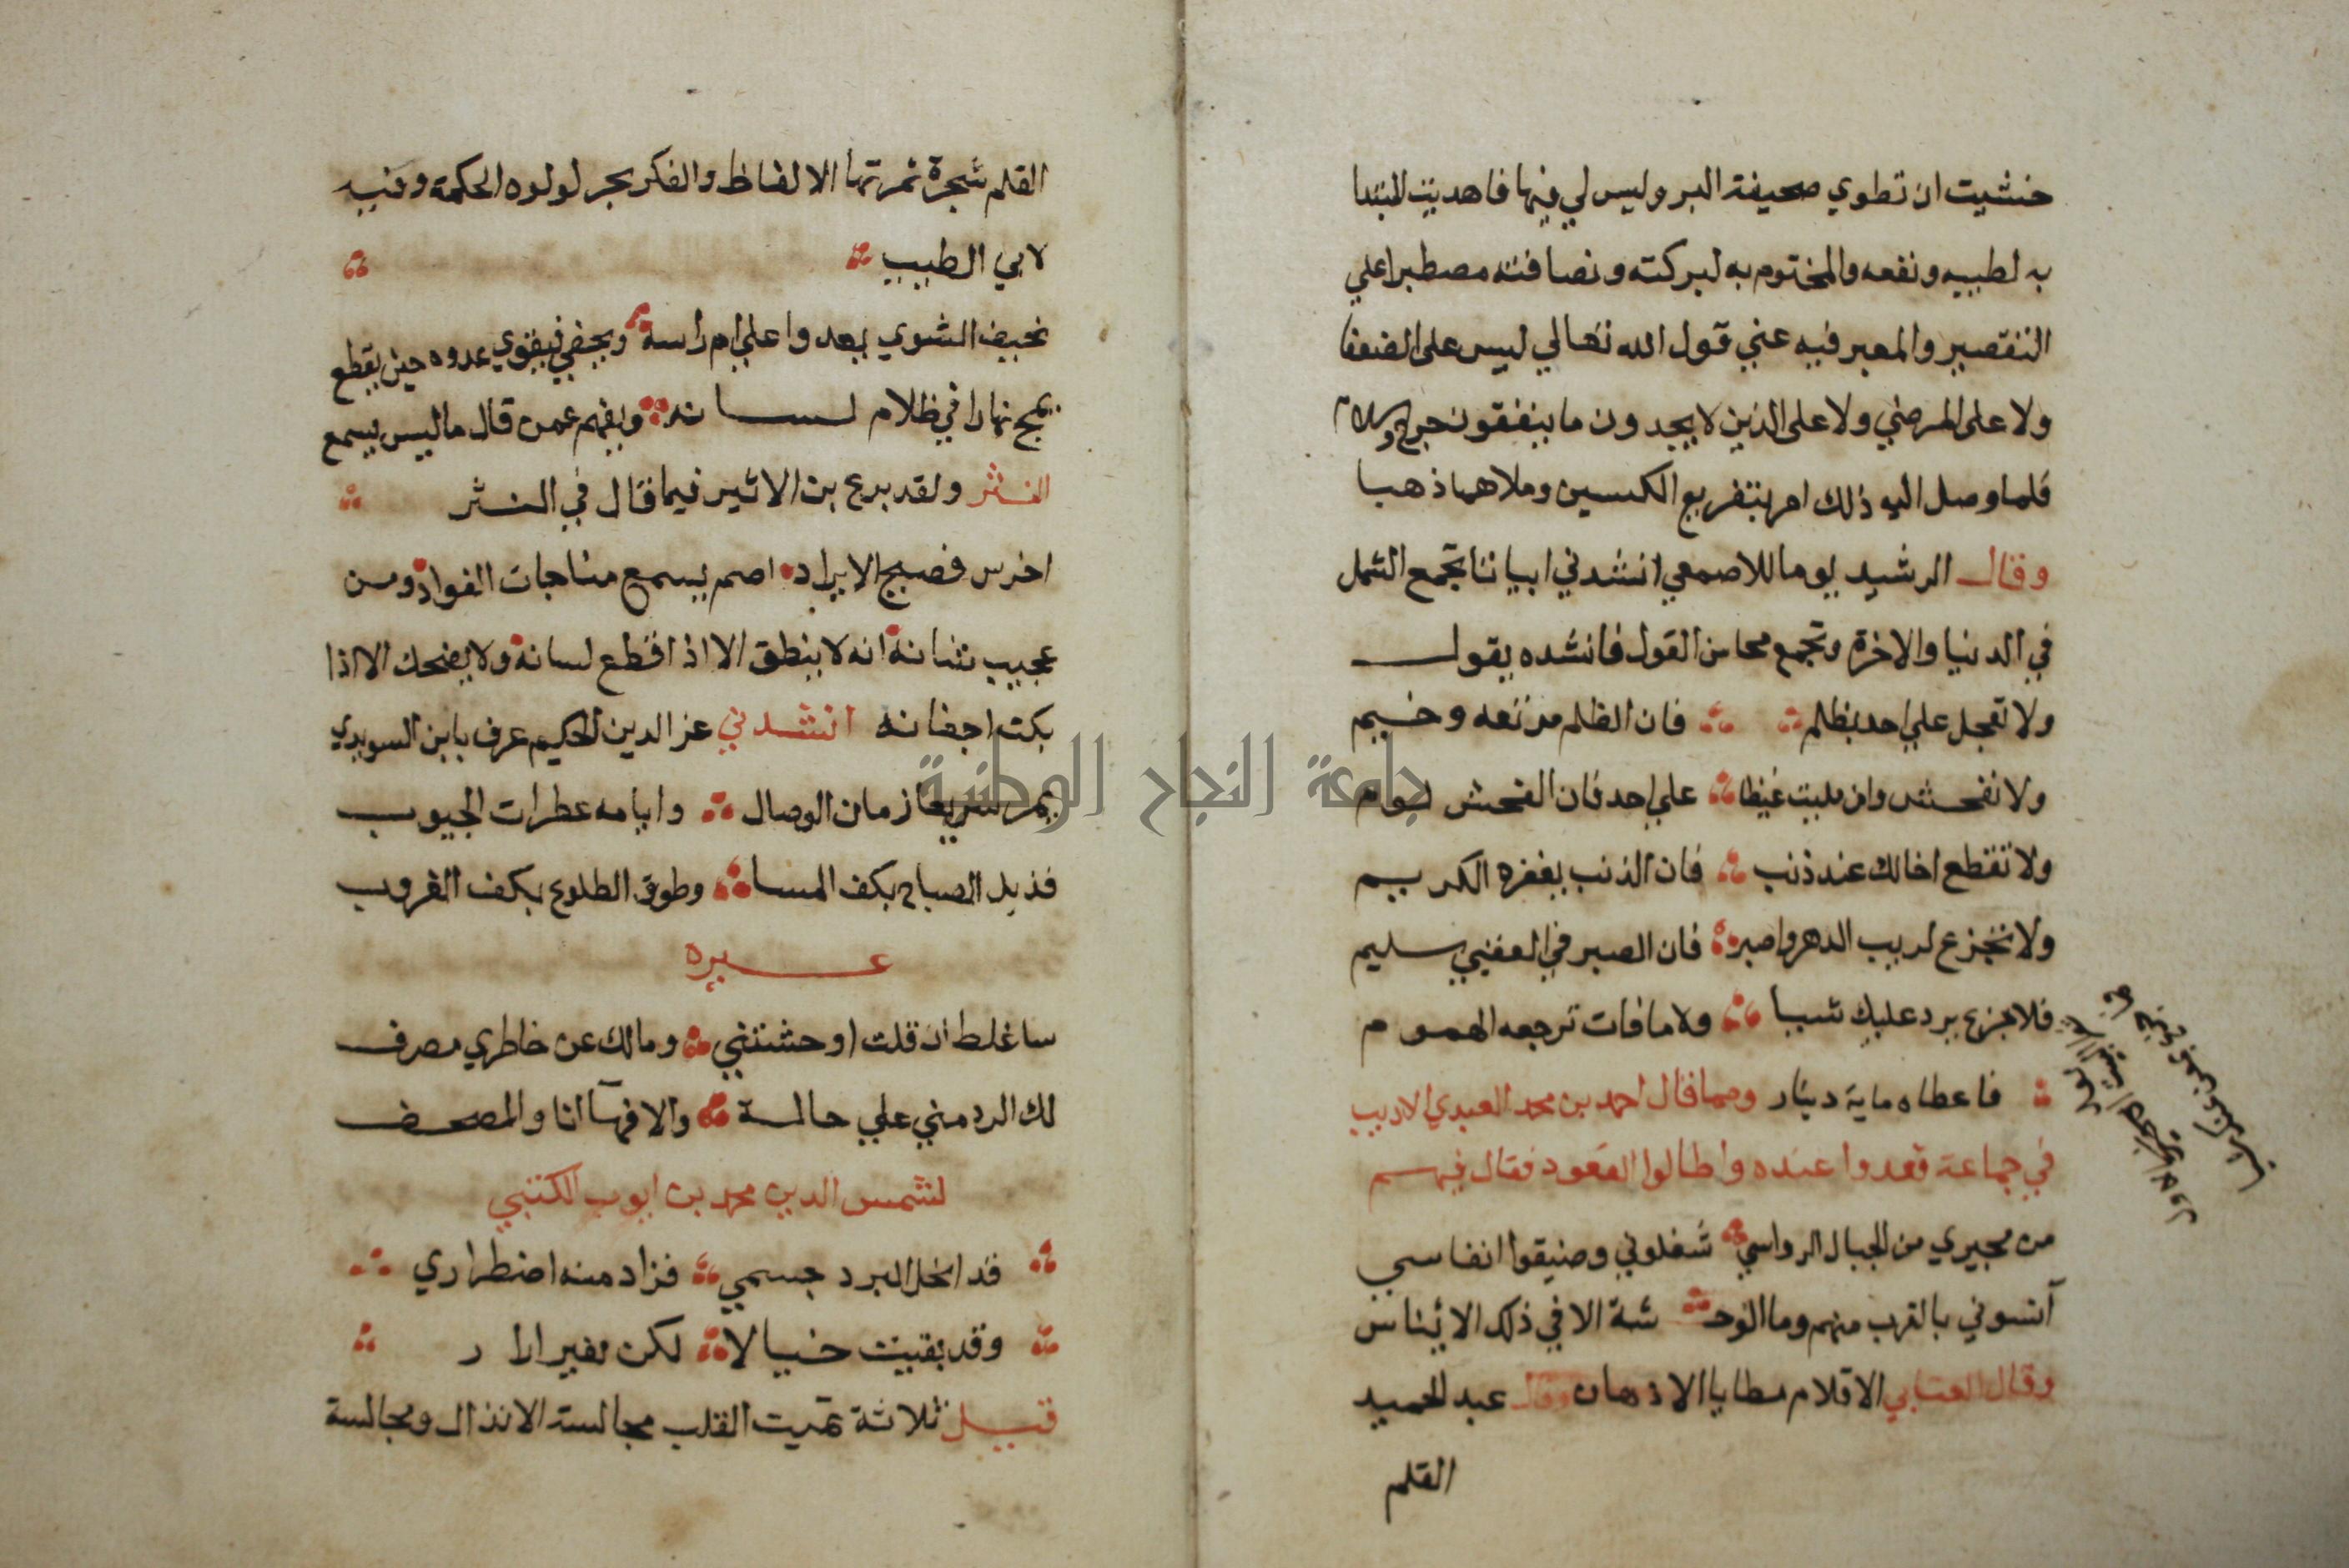 خشيت ان تطوي صحيفة البر وليس لي فيها فاهديت المبتدا
به لطيبه ونفعه والمختوم به لبركته ونصافته مصطبرا علي
التقصير والمعبر فيه عني قول الله تعالي ليس على الضعفا
ولا على المرضي ولا على الذين لا يجدون ما ينفقون حرج
فلما وصل اليه ذلك امر بتفريع الكسين وملاهما ذهبا
وقال الرشيد يوما للاصمعي انشدني ابياتا تجمع الشمل
في الدنيا والاخرة وتجمع محاسن القول فانشده يقول
ولا تعجل علي احد بظلم فان الظلم مرتعه وخيم
ولا تفحش وان مليت غيظا علي احد فان الفحش لوم
ولا تقطع اخا لك عند ذنب فان الذنب يغفره الكريم
ولا تجزع لريب الدهر واصبر فان الصبر في العقبي سليم
فلا جزع يرد عليك شيا ولا ما فات ترجعه الهموم
فاعطاه ماية دينار ومما قال احمد بن محمد العبدي الاديب
في جماعة قعدوا عنده واطالوا القعود فقال فيهم
من مجيري من الجبال الرواسي شغلوني وضيقوا انفاسي
آنسوني بالقرب منهم وما الوحـ شة الا في ذلك الائناس
وقال العتابي الاقلام مطايا الاذهان وقال عبد الحميد
القلم
القلم شجرة ثمرتها الالفاظ والفكر بحر لولوه الحكمة وفيه
لابي الطيب
نحيف الشوي يعدوا علي ام راسه ويحفي فيقوي عدوه حين يقطع
يمج نهارا في ظلام لسانه ويفهم عمن قال ما ليس يسمع
النثر ولقد بدع بن الاثير فيما قال في النثر
اخرس فصيح الايراد اصم يسمع مناجات الفواد ومن
عجيب شانه انه لا ينطق الا اذا قطع لسانه ولا يضحك الا اذا
بكت اجفانه انشدني عز الدين الحكيم عرف بابن السويدي
يمر سريعا زمان الوصال وايامه عطرات الجيوب
فذيل الصباح بكف المسا وطوق الطلوع بكف الغروب
غيره
ساغلط ان قلت اوحشتني ومالك عن خاطري مصرف
لك الرد مني علي حالة والا فها انا والمصحف
لشمس الدين محمد بن ايوب الكتبي
قد انحل البرد جسمي فزاد منه اضطراري
وقد بقيت خيالا لكن بغير ازار
قيل ثلاثة تميت القلب مجالسة الانذال ومجالسة
جامعة النجاح الوطنية